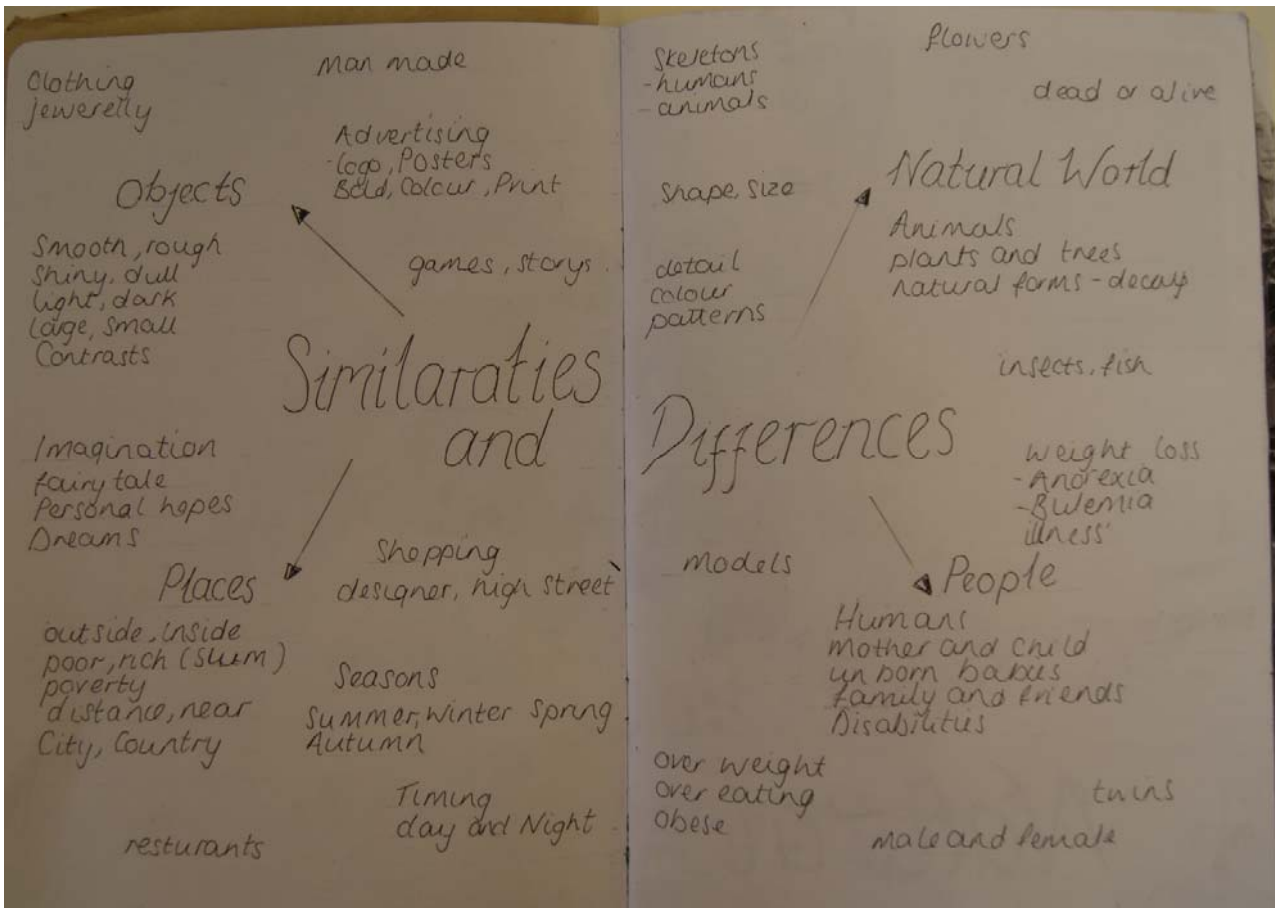 Clothing
jewerelly
Man made
Advertising
-logo, Posters
Bold, Colour, Print
Objects
Smooth, rough
Shiny, dull
light, dark
large, small
Contrasts
games, storys
Similaraties
and
Imagination
fairytale
Personal hopes
Dreams
Places
outside, inside
poor, rich (Slum)
poverty
distance, near
City, Country
Shopping
designer, high street
Seasons
Summer, Winter Spring
Autumn
Timing
day and Night
resturants
Skeletons
-humans
-animals
flowers
dead or alive
Natural World
Shape, size
Animals
plants and trees
natural forms - decay
detail
colour
patterns
insects, fish
Differences
weight loss
-Anorexia
-Bulemia
illness
models
People
Humans
mother and child
unborn babies
family and friends
Disabilities
Over weight
Over eating
Obese
twins
male and female